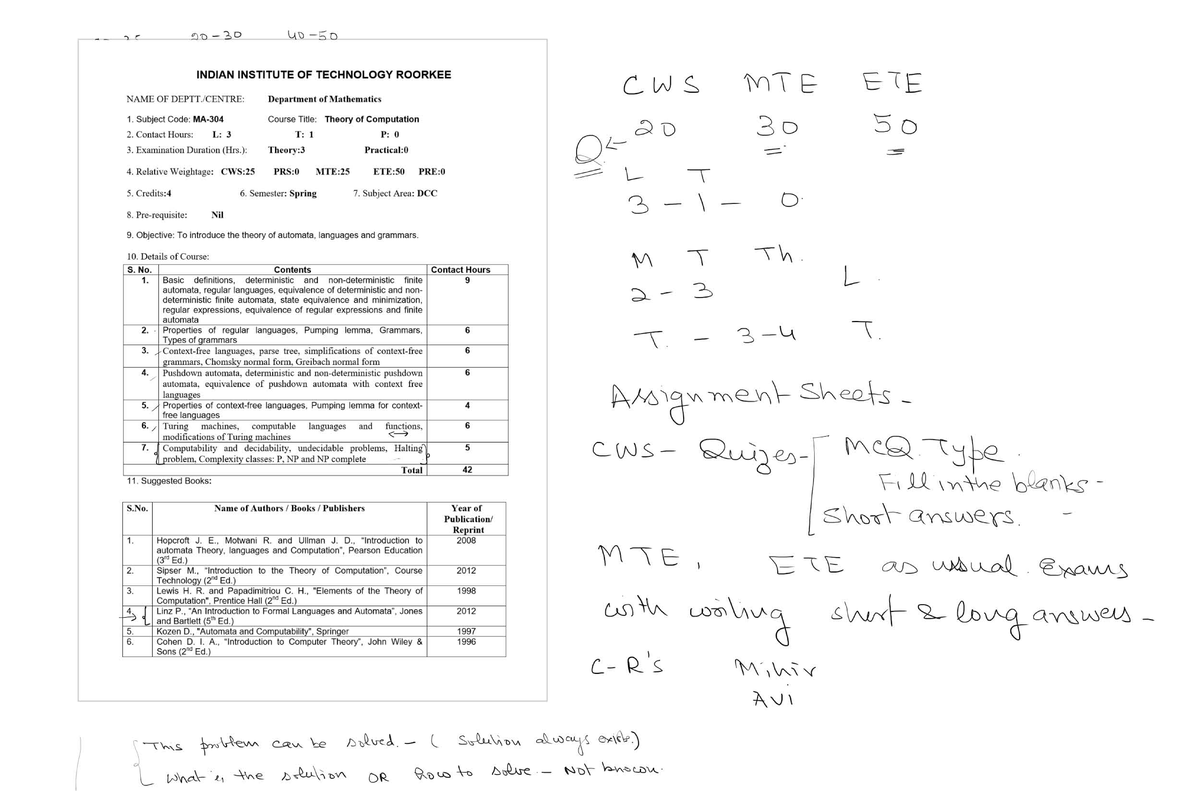 20-30 40-50
INDIAN INSTITUTE OF TECHNOLOGY ROORKEE
NAME OF DEPTT./CENTRE: Department of Mathematics
1. Subject Code: MA-304 Course Title: Theory of Computation
2. Contact Hours: L: 3 T: 1 P: 0
3. Examination Duration (Hrs.): Theory:3 Practical:0
4. Relative Weightage: CWS:25 PRS:0 MTE:25 ETE:50 PRE:0
5. Credits:4 6. Semester: Spring 7. Subject Area: DCC
8. Pre-requisite: Nil
9. Objective: To introduce the theory of automata, languages and grammars.
10. Details of Course:
S. No. Contents Contact Hours
1. Basic definitions, deterministic and non-deterministic finite 9
automata, regular languages, equivalence of deterministic and non-
deterministic finite automata, state equivalence and minimization,
regular expressions, equivalence of regular expressions and finite
automata
2. Properties of regular languages, Pumping lemma, Grammars, 6
Types of grammars
3. Context-free languages, parse tree, simplifications of context-free 6
grammars, Chomsky normal form, Greibach normal form
4. Pushdown automata, deterministic and non-deterministic pushdown 6
automata, equivalence of pushdown automata with context free
languages
5. Properties of context-free languages, Pumping lemma for context- 4
free languages
6. Turing machines, computable languages and functions, 6
modifications of Turing machines
7. Computability and decidability, undecidable problems, Halting 5
problem, Complexity classes: P, NP and NP complete
Total 42
11. Suggested Books:
S.No. Name of Authors / Books / Publishers Year of
Publication/
Reprint
1. Hopcroft J. E., Motwani R. and Ullman J. D., "Introduction to 2008
automata Theory, languages and Computation", Pearson Education
(3rd Ed.)
2. Sipser M., "Introduction to the Theory of Computation", Course 2012
Technology (2nd Ed.)
3. Lewis H. R. and Papadimitriou C. H., "Elements of the Theory of 1998
Computation", Prentice Hall (2nd Ed.)
4. Linz P., "An Introduction to Formal Languages and Automata", Jones 2012
and Bartlett (5th Ed.)
5. Kozen D., "Automata and Computability", Springer 1997
6. Cohen D. I. A., "Introduction to Computer Theory", John Wiley & 1996
Sons (2nd Ed.)
CWS MTE ETE
Q ← 20 30 50
L T
3 - 1 - 0
M T Th.
2 - 3 L.
T. - 3-4 T.
Assignment Sheets -
CWS - Quizes - MCQ Type.
Fill in the blanks -
Short answers. -
MTE, ETE as usual Exams
with writing short & long answers -
C-R's Mihir
Avi
This problem can be solved. - ( Solution always exists.)
What is the solution OR How to solve - Not known.